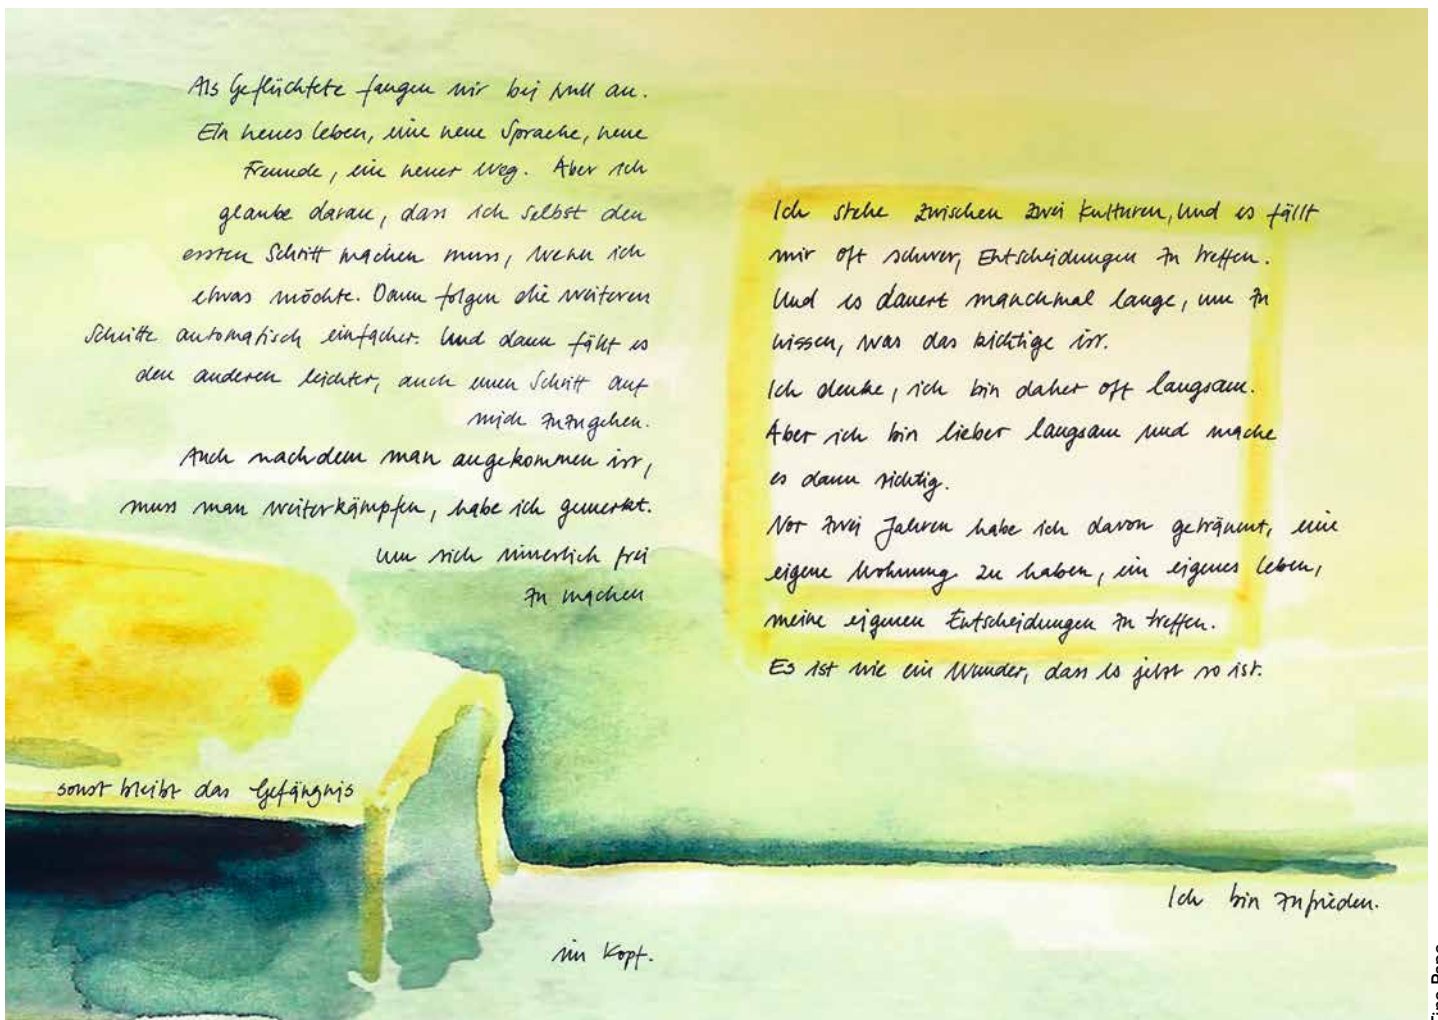 Als Geflüchtete fangen wir bei Null an.
Ein neues Leben, eine neue Sprache, neue
Freunde, ein neuer Weg. Aber ich
glaube daran, dass ich selbst den
ersten Schritt machen muss, wenn ich
etwas möchte. Dann folgen die weiteren
Schritte automatisch einfacher. Und dann fällt es
den anderen leichter, auch einen Schritt auf
mich zuzugehen.
Auch nachdem man angekommen ist,
muss man weiterkämpfen, habe ich gemerkt.
Um sich innerlich frei
zu machen
sonst bleibt das Gefängnis
im Kopf.
Ich stehe zwischen zwei Kulturen, und es fällt
mir oft schwer, Entscheidungen zu treffen.
Und es dauert manchmal lange, um zu
wissen, was das Richtige ist.
Ich denke, ich bin daher oft langsam.
Aber ich bin lieber langsam und mache
es dann richtig.
Vor zwei Jahren habe ich davon geträumt, eine
eigene Wohnung zu haben, ein eigenes Leben,
meine eigenen Entscheidungen zu treffen.
Es ist wie ein Wunder, dass es jetzt so ist.
Ich bin zufrieden.